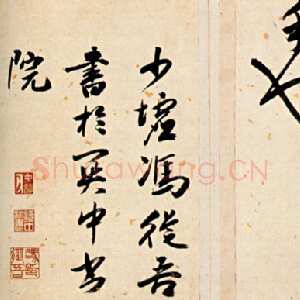 少墟馮從吾
書於關中書
院
Shufawang.CN